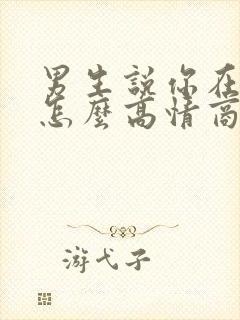 男生說你在
怎麼高情商
游弋子